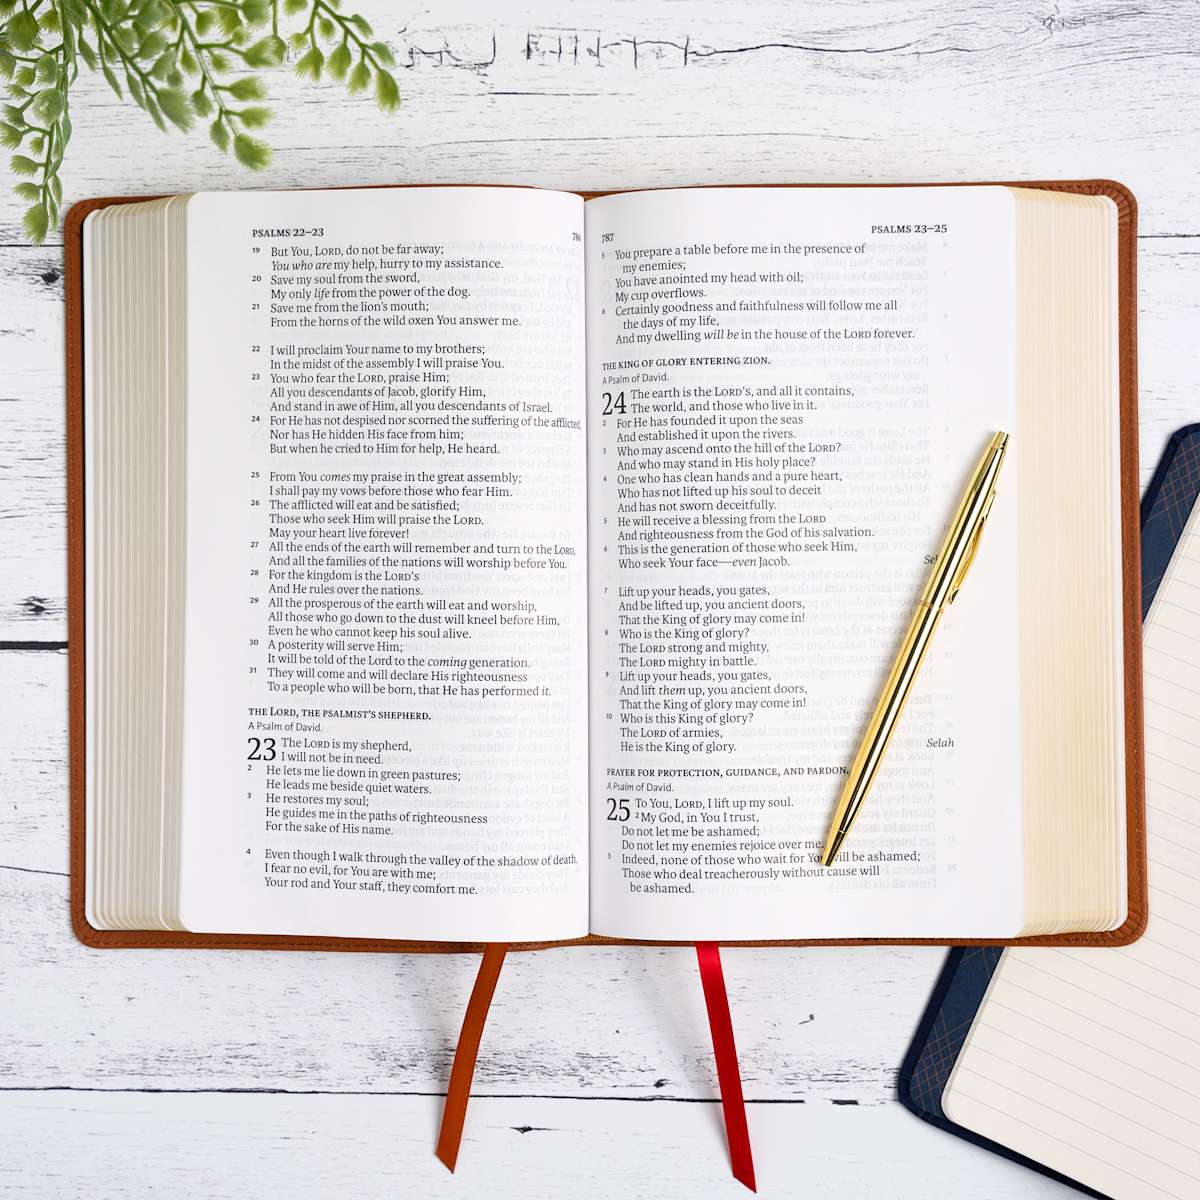 PSALMS 22–23
786
19 But You, LORD, do not be far away;
You who are my help, hurry to my assistance.
20 Save my soul from the sword,
My only life from the power of the dog.
21 Save me from the lion's mouth;
From the horns of the wild oxen You answer me.
22 I will proclaim Your name to my brothers;
In the midst of the assembly I will praise You.
23 You who fear the LORD, praise Him;
All you descendants of Jacob, glorify Him,
And stand in awe of Him, all you descendants of Israel.
24 For He has not despised nor scorned the suffering of the afflicted;
Nor has He hidden His face from him;
But when he cried to Him for help, He heard.
25 From You comes my praise in the great assembly;
I shall pay my vows before those who fear Him.
26 The afflicted will eat and be satisfied;
Those who seek Him will praise the LORD.
May your heart live forever!
27 All the ends of the earth will remember and turn to the LORD,
And all the families of the nations will worship before You.
28 For the kingdom is the LORD'S
And He rules over the nations.
29 All the prosperous of the earth will eat and worship,
All those who go down to the dust will kneel before Him,
Even he who cannot keep his soul alive.
30 A posterity will serve Him;
It will be told of the Lord to the coming generation.
31 They will come and will declare His righteousness
To a people who will be born, that He has performed it.
THE LORD, THE PSALMIST'S SHEPHERD.
A Psalm of David.
23 The LORD is my shepherd,
I will not be in need.
2 He lets me lie down in green pastures;
He leads me beside quiet waters.
3 He restores my soul;
He guides me in the paths of righteousness
For the sake of His name.
4 Even though I walk through the valley of the shadow of death,
I fear no evil, for You are with me;
Your rod and Your staff, they comfort me.
787
PSALMS 23–25
5 You prepare a table before me in the presence of
my enemies;
You have anointed my head with oil;
My cup overflows.
6 Certainly goodness and faithfulness will follow me all
the days of my life,
And my dwelling will be in the house of the LORD forever.
THE KING OF GLORY ENTERING ZION.
A Psalm of David.
24 The earth is the LORD'S, and all it contains,
The world, and those who live in it.
2 For He has founded it upon the seas
And established it upon the rivers.
3 Who may ascend onto the hill of the LORD?
And who may stand in His holy place?
4 One who has clean hands and a pure heart,
Who has not lifted up his soul to deceit
And has not sworn deceitfully.
5 He will receive a blessing from the LORD
And righteousness from the God of his salvation.
6 This is the generation of those who seek Him,
Who seek Your face—even Jacob.
7 Lift up your heads, you gates,
And be lifted up, you ancient doors,
That the King of glory may come in!
8 Who is the King of glory?
The LORD strong and mighty,
The LORD mighty in battle.
9 Lift up your heads, you gates,
And lift them up, you ancient doors,
That the King of glory may come in!
10 Who is this King of glory?
The LORD of armies,
He is the King of glory. Selah
PRAYER FOR PROTECTION, GUIDANCE, AND PARDON.
A Psalm of David.
25 To You, LORD, I lift up my soul.
2 My God, in You I trust,
Do not let me be ashamed;
Do not let my enemies rejoice over me.
3 Indeed, none of those who wait for You will be ashamed;
Those who deal treacherously without cause will
be ashamed.